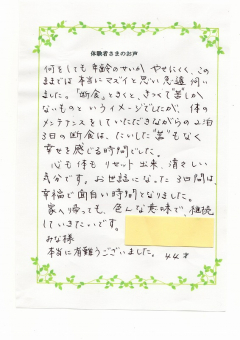 体験者さまのお声
何をしても年齢のせいか やせにくく、この
ままでは本当にマズイと思い急遽伺い
ました。"断食"ときくと、きつくて苦しか
ないものというイメージでしたが、体の
メンテナンスをしていただきながらの2泊
3日の断食は、たいした"苦"もなく
幸せを感じる時間でした。
心も体もリセット出来、清々しい
気分です。お世話になった3日間は、
幸福で面白い時間となりました。
家へ帰っても、色んな意味で、継続
していきたいです。
みな様
本当に有難うございました。 44才